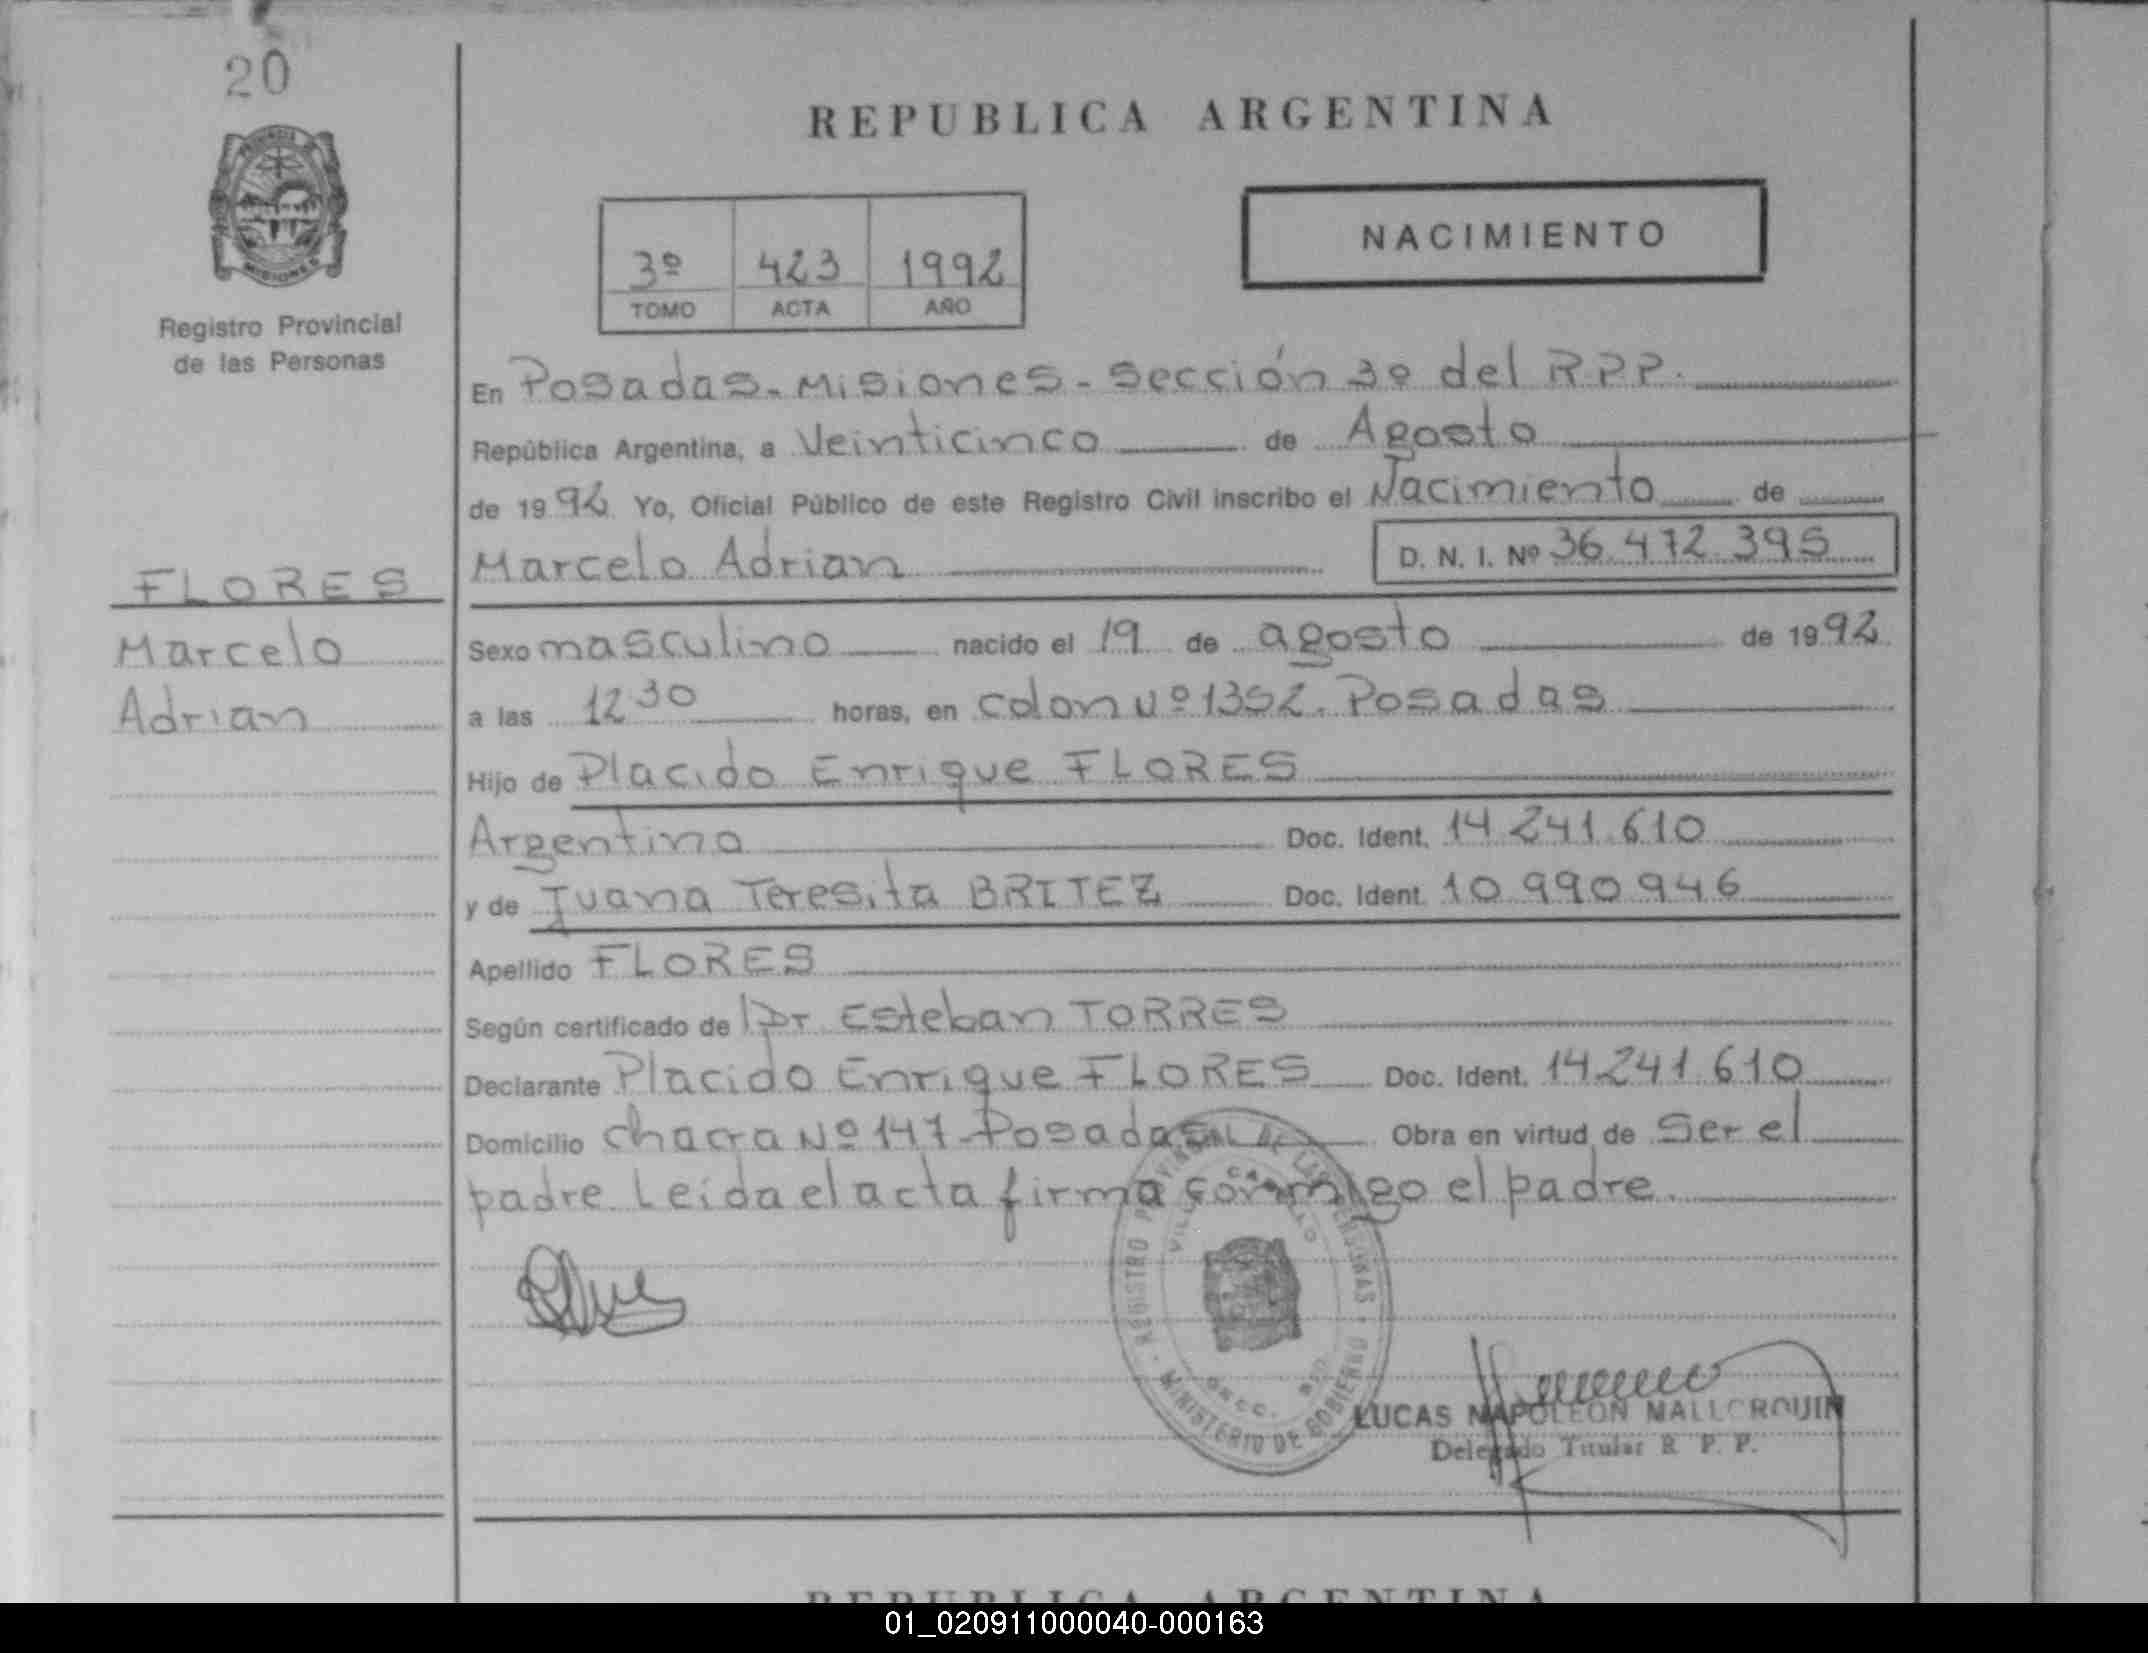 20
REPUBLICA ARGENTINA
MISIONES
Registro Provincial
de las Personas
3º 423 1992
TOMO ACTA AÑO
NACIMIENTO
En Posadas-Misiones-Sección 3º del R.P.P.
República Argentina, a Veinticinco de Agosto
de 1992 Yo, Oficial Público de este Registro Civil inscribo el Nacimiento de
Marcelo Adrian D. N. I. Nº 36.472.395
FLORES
Marcelo
Adrian
Sexo masculino nacido el 19 de agosto de 1992
a las 12 30 horas, en colon Nº 1352. Posadas
Hijo de Placido Enrique FLORES
Argentino Doc. Ident. 14.241.610
y de Juana Teresita BRITEZ Doc. Ident. 10.990.946
Apellido FLORES
Según certificado de Dr Esteban TORRES
Declarante Placido Enrique FLORES Doc. Ident. 14.241.610
Domicilio chacra Nº 147-Posadas Obra en virtud de Ser el
padre. Leída el acta firma conmigo el padre.
REGISTRO PROVINCIAL DE LAS PERSONAS
MINISTERIO DE GOBIERNO
LUCAS NAPOLEON MALLORQUIN
Delegado Titular R. P. P.
REPUBLICA ARGENTINA
01_020911000040-000163